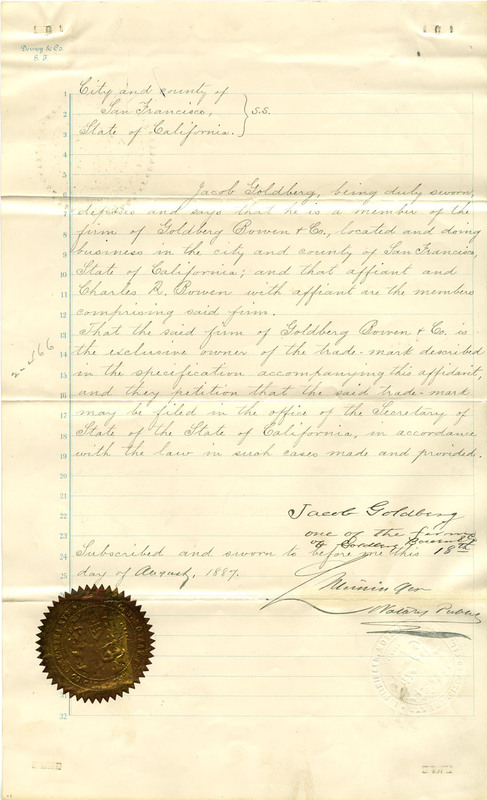 Dewey & Co.
S. F.
City and county of
San Francisco,
State of California.
} S.S.
Jacob Goldberg, being duly sworn,
deposes and says that he is a member of the
firm of Goldberg Bowen & Co., located and doing
business in the city and county of San Francisco,
State of California; and that affiant and
Charles R. Bowen with affiant are the members
comprising said firm.
That the said firm of Goldberg Bowen & Co. is
the exclusive owner of the trade-mark described
in the specification accompanying this affidavit,
and they petition that the said trade-mark
may be filed in the office of the Secretary of
State of the State of California, in accordance
with the law in such cases made and provided.
Jacob Goldberg
one of the firm
of Goldberg Bowen & Co
Subscribed and sworn to before me this 18th
day of August, 1887.
Notary Public
1
2
3
4
5
6
7
8
9
10
11
12
13
14
15
16
17
18
19
20
21
22
23
24
25
32